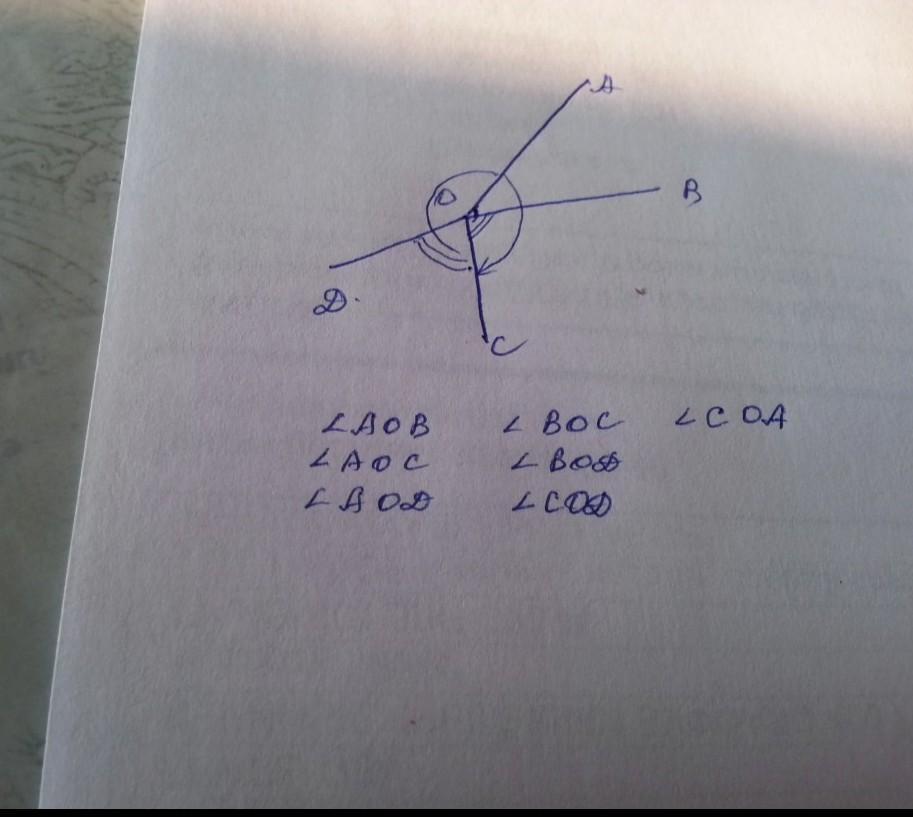 A
O
B
D.
C
∠AOB ∠BOC ∠COA
∠AOC ∠BOD
∠AOD ∠COD